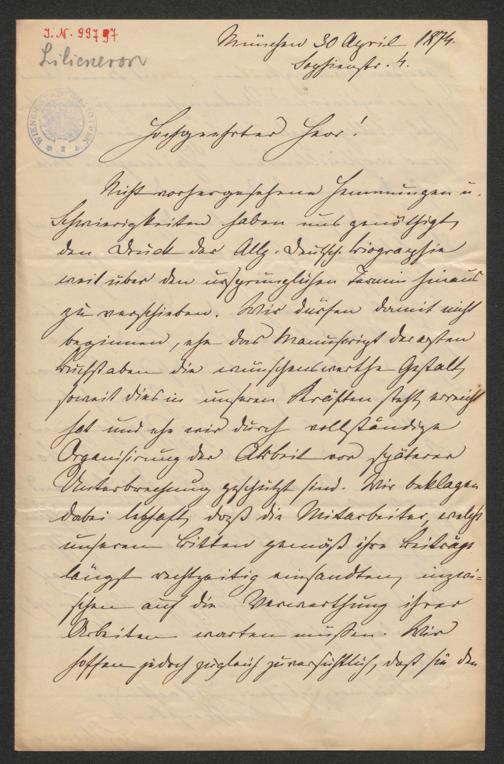 J. N. 99797
Liliencron
München 30 April 1874.
Sophienstr. 4.
WIENER STADTBIBLIOTHEK
Hochgeehrter Herr!
Nicht vorhergesehene Hemmungen u.
Schwierigkeiten haben uns genöthigt,
den Druck der Allg. Deutsch. Biographie
weit über den ursprünglichen Termin hinaus
zu verschieben. Wir dürfen damit nicht
beginnen, ehe das Manuscript der ersten
Buchstaben die wünschenswerthe Gestalt,
soweit dies in unseren Kräften steht, erreicht
hat und ehe wir durch vollständige
Organisirung der Arbeit vor späterer
Unterbrechung geschützt sind. Wir beklagen
dabei lebhaft, daß die Mitarbeiter, welche
unseren Bitten gemäß ihre Beiträge
längst rechtzeitig einsandten, inzwi-
schen auf die Verwerthung ihrer
Arbeiten warten müßen. Wir
hoffen jedoch zugleich zuversichtlich, daß sie den